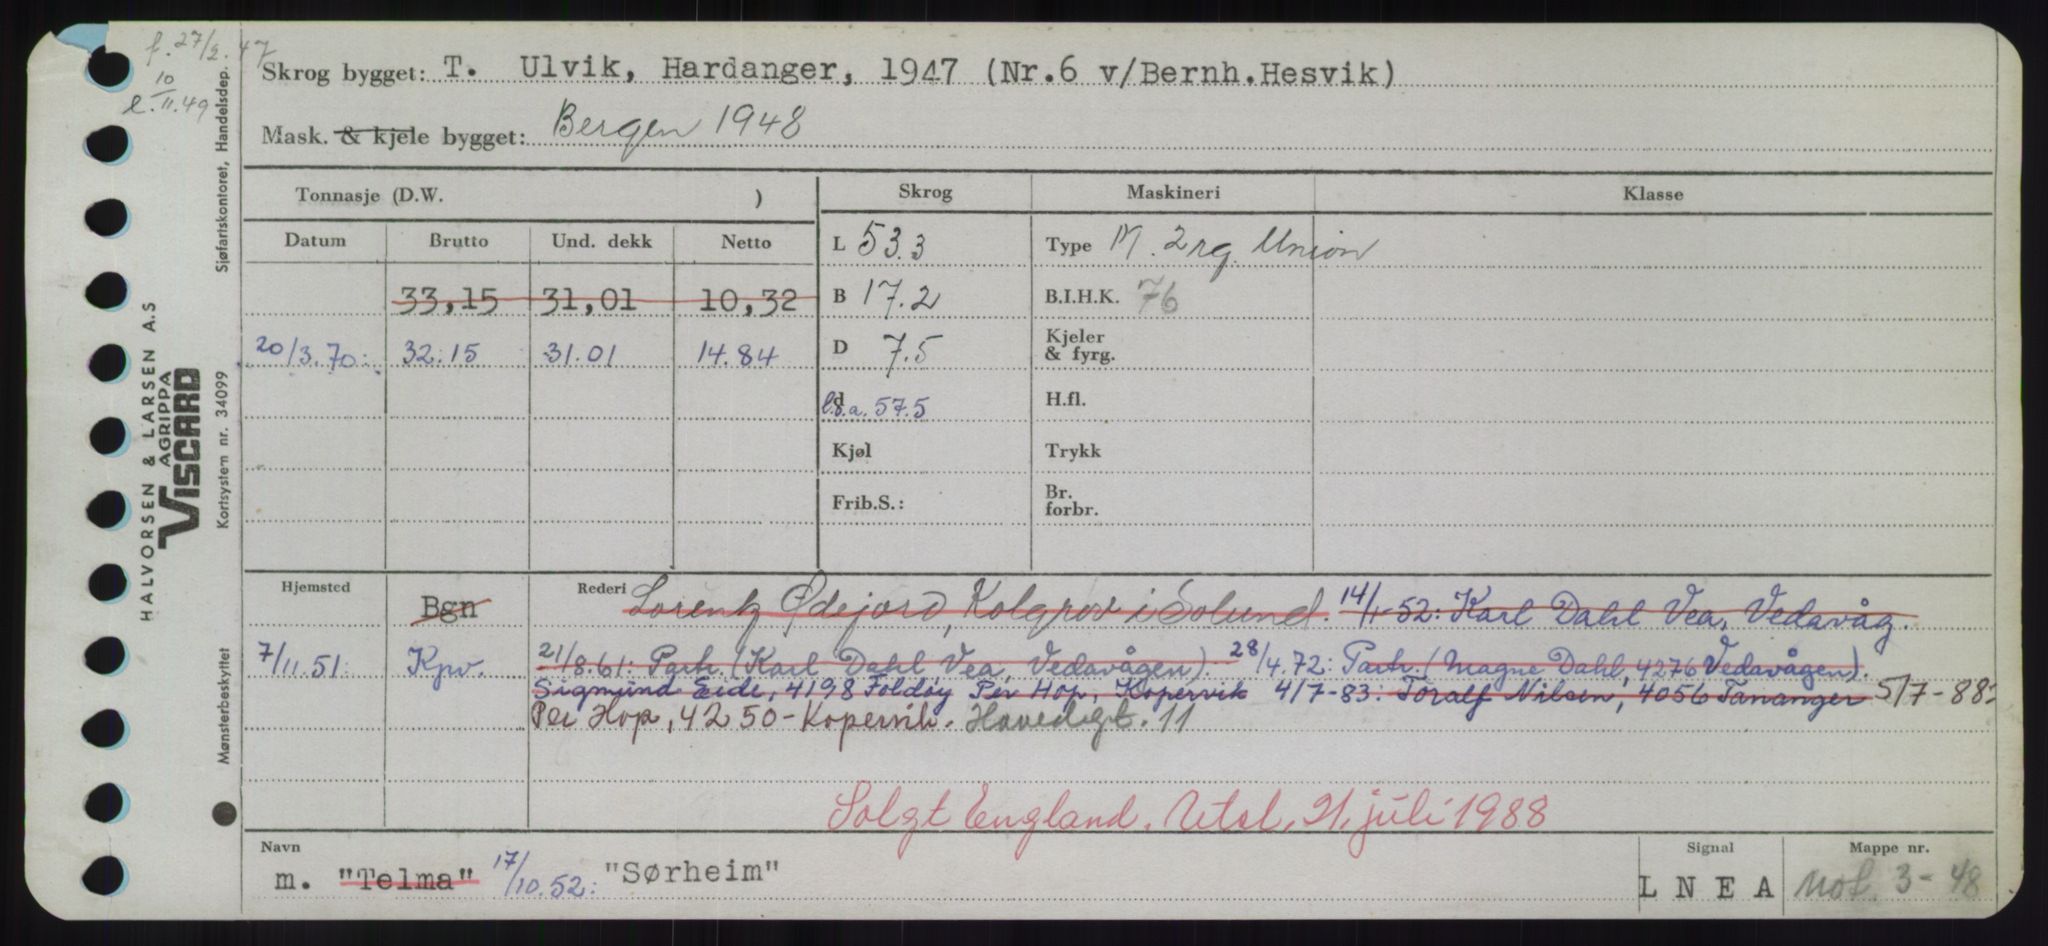 f. 27/2. 47
10
e. 11.49
Skrog bygget: T. Ulvik, Hardanger, 1947 (Nr.6 v/Bernh.Hesvik)
Mask. & kjele bygget: Bergen 1948
Tonnasje (D.W. )
Skrog Maskineri Klasse
Datum Brutto Und. dekk Netto
L 53.3 Type M. 2 rg. Union
33,15 31,01 10,32
B 17.2 B.I.H.K. 76
20/3.70: 32.15 31.01 14.84
D 7.5 Kjeler & fyrg.
d l.o.a. 57.5 H.fl.
Kjøl Trykk
Frib.S.: Br. forbr.
Hjemsted Bgn Rederi Lorentz Ødejord, Kolgrov i Solund. 14/1-52: Karl Dahl Vea, Vedavåg.
7/11.51: Kpv. 21/8.61: Parh. (Karl Dahl Vea, Vedavågen). 28/4.72: Parh. (Magne Dahl, 4276 Vedavågen).
Sigmund Eide, 4198 Foldøy Per Hop, Kopervik 4/7-83. Toralf Nilsen, 4056 Tananger 5/7-88:
Per Hop, 4250-Kopervik. Hovedigt. 11
Solgt England. Utsl. 21. juli 1988
Navn Signal Mappe nr.
m. "Telma" 17/10.52: "Sørheim" LNEA Mot. 3-48
HALVORSEN & LARSEN A.S
AGRIPPA
VISCARD
Sjøfartskontoret, Handelsdep.
Kortsystem nr. 34099
Mønsterbeskyttet